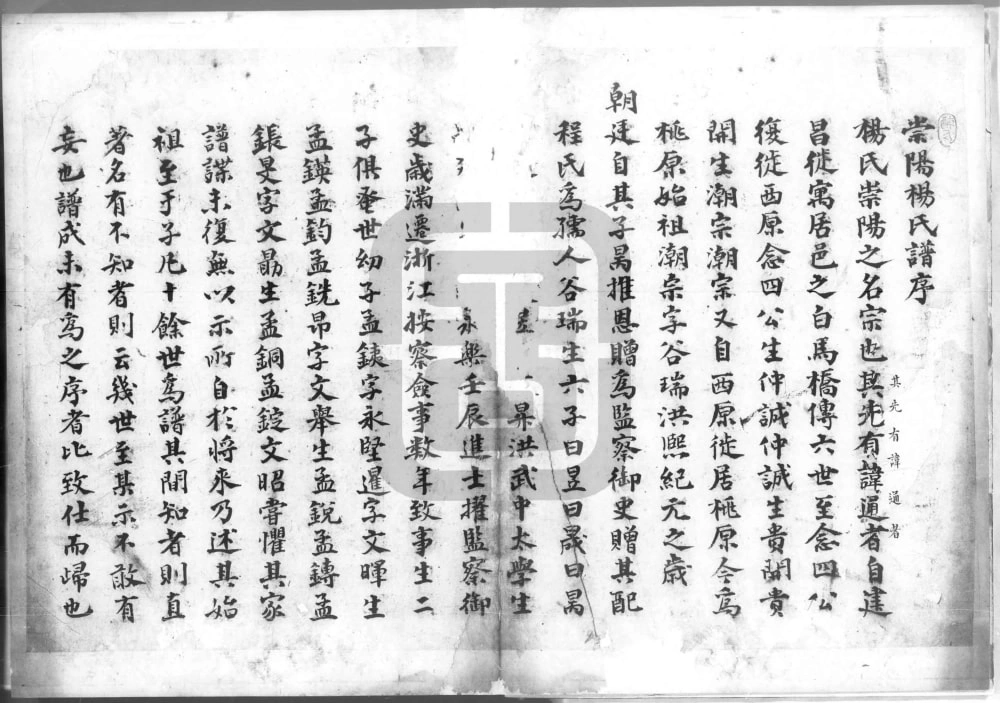 崇陽楊氏譜序
楊氏崇陽之名宗也其先有諱通者自建
其先有諱通者
昌徙寓居邑之白馬橋傳六世至念四公
復徙西原念四公生仲誠仲誠生貴開貴
開生潮宗潮宗又自西原徙居桃原今為
桃原始祖潮宗字谷瑞洪熙紀元之歲
朝廷自其子暠推恩贈為監察御史贈其配
程氏為孺人谷瑞生六子曰昱曰晟曰暠
昇洪武中太學生
永樂壬辰進士擢監察御
史歲滿遷浙江按察僉事数年致事生二
子俱蚤世幼子孟鐩字永堅暹字文暉生
孟鍈孟鈞孟銑昂字文舉生孟銳孟鏄孟
鋹旻字文勗生孟銅孟錠文昭嘗懼其家
譜諜未復無以示所自於將來乃述其始
祖至于子凡十餘世為譜其間知者則直
著名有不知者則云幾世至某示不敢有
妄也譜成未有為之序者比致仕而歸也